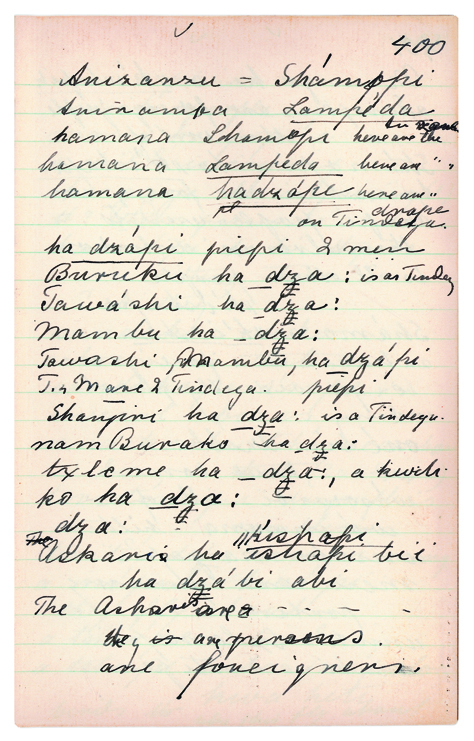 400
Anizanzu = Shámopi
Lampéda
hamana Shamopi here are the
hamana Lampeda here are " "
hamana hadzápe here are "
pl
on Tindega.
ha dzápi piepi 2 men
Buruku ha dza : is as Tindeg
Tawáshi ha dza :
Mambu ha dza :
Tawashi Mambu, ha dzápi
T. & Mane 2 Tindega. piepi
Shanjini ha dza : is a Tindega.
nam Burako ha dza :
ha dza :, a
ko ha dza :
dza :
Askaris ha ishapi bii
kishapi
ha dzábi abi
The Askaris are - - - -
they is are persons.
are foreigners.